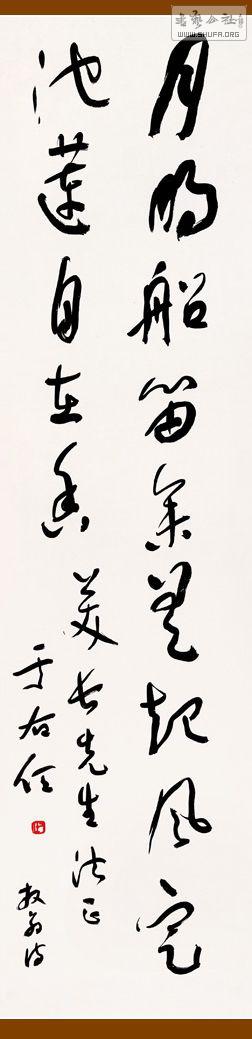 書藝公社
WWW.SHUFA.ORG
月明船笛參差起風定
池蓮自在香
長先生法正
于右任
放翁詩